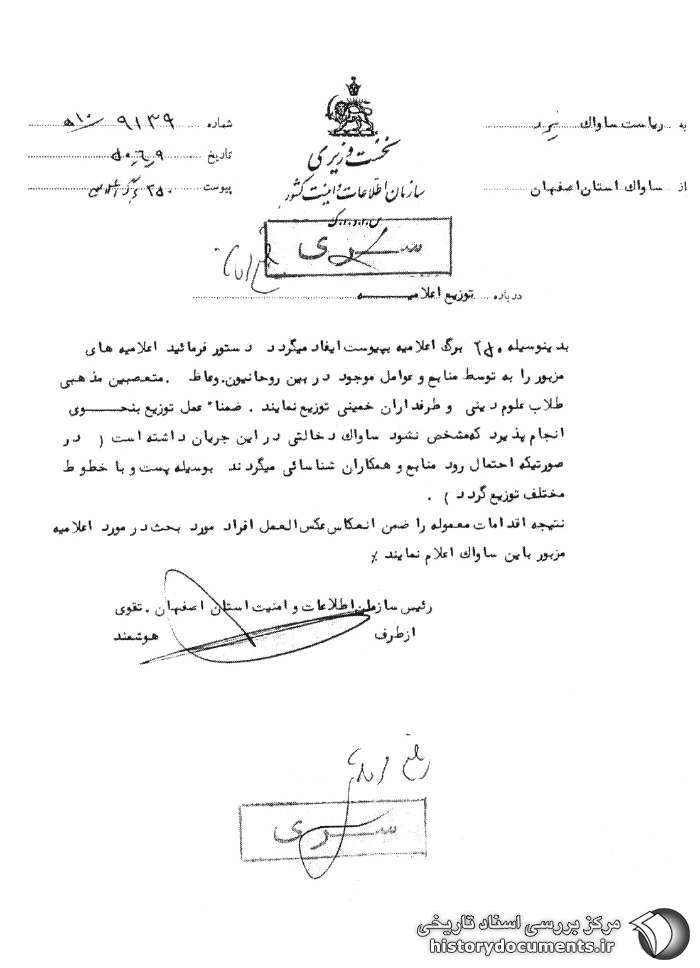 به ریاست ساواک یزد
شماره ۹۱۳۹/۵۱۰
تاریخ ۵۰٫۶٫۹
از ساواک استان اصفهان
پیوست ۲۵۰ برگ اعلامیه
نخست وزیری
سازمان اطلاعات و امنیت کشور
س.ا.و.ا.ک
سری
درباره توزیع اعلامیه
بدینوسیله ۲۵۰ برگ اعلامیه بپیوست ایفاد میگردد دستور فرمائید اعلامیه های
مزبور را به توسط منابع و عوامل موجود در بین روحانیون. وعاظ . متعصبین مذهبی
طلاب علوم دینی و طرفداران خمینی توزیع نمایند . ضمناً عمل توزیع بنحوی
انجام پذیرد که مشخص نشود ساواک دخالتی در این جریان داشته است ( در
صورتیکه احتمال رود منابع و همکاران شناسائی میگردند بوسیله پست و با خطوط
مختلف توزیع گردد ) .
نتیجه اقدامات معموله را ضمن انعکاس عکس العمل افراد مورد بحث در مورد اعلامیه
مزبور باین ساواک اعلام نمایند ٪
رئیس سازمان اطلاعات و امنیت استان اصفهان . تقوی
از طرف هوشمند
سری
مرکز بررسی اسناد تاریخی
historydocuments.ir